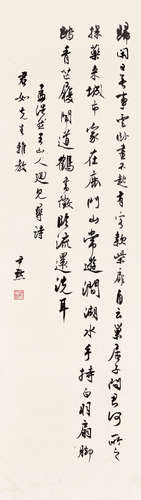 歸閑日無事雲卧晝不起有客款柴扉自云巢居子問君何所之
採藥來城市家在鹿門山常遊澗湖水手持白羽扇脚
踏青芒履聞道鶴書徵臨流還洗耳
孟浩然王山人迥見尋詩
君如先生雅教
尹默